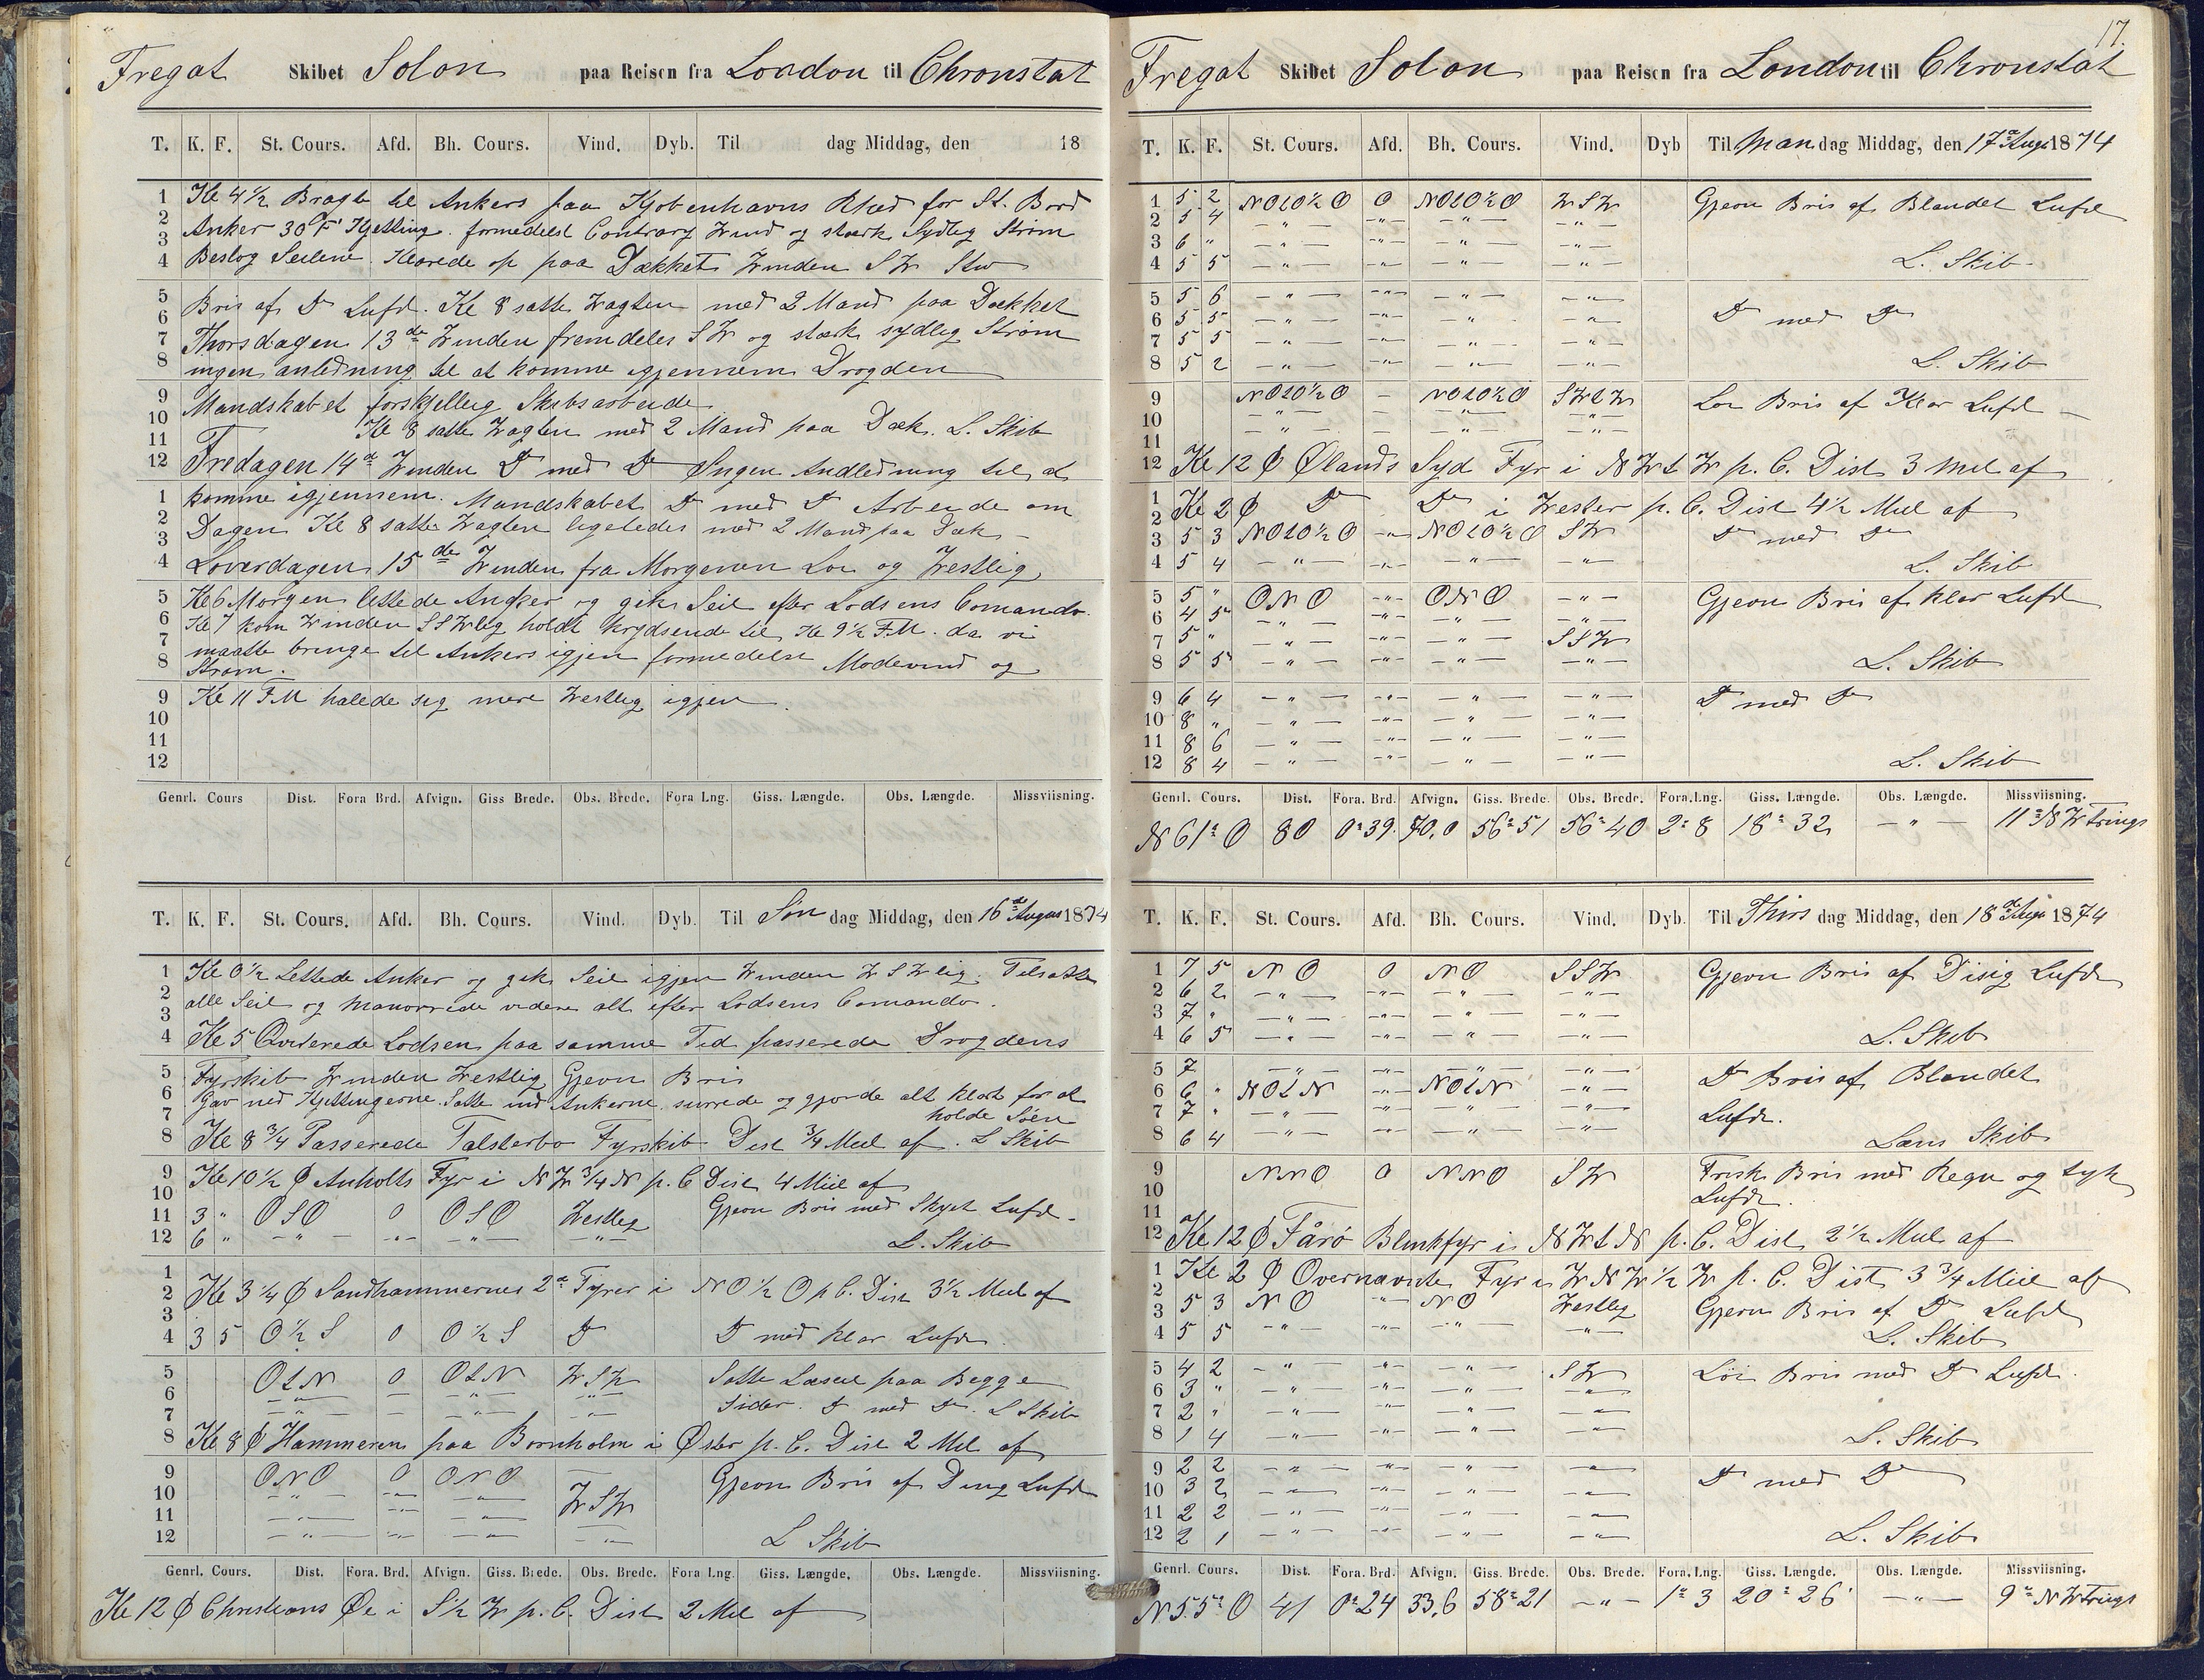 Fregat Skibet Solon paa Reisen fra London til Chronstat
T. K. F. St. Cours. Afd. Bh. Cours. Vind. Dyb. Til dag Middag, den 18
1 Kl 4½ Bragte til Ankers paa Kjøbenhavns Rhed for St. Bord
2 Anker 30 F Kjetting. formedelst Contrary Wind og stærk Sydlig Strøm
3
4 Beslog Seilene. Klarede op paa Dækket Winden SW Stw
5 Bris af Do Luft. Kl 8 satte Wagten med 2 Mand paa Dækket
6
7 Thorsdagen 13de Winden fremdeles SW og stærk sydlig Strøm
8 ingen anledning til at komme igjennem Drogden
9 Mandskabet forskjellig Skibsarbeide
10
11 Kl 8 satte Wagten med 2 Mand paa Dæk. L. Skib
12 Fredagen 14d Winden Do med Do Ingen Andledning til at
1 komme igjennem. Mandskabet Do med Do Arbeide om
2
3 Dagen Kl 8 satte Wagten ligeledes med 2 Mand paa Dæk –
4 Løverdagen 15de Winden fra Morgenen Løi og Westlig
5 Kl 6 Morgen lettede Anker og gik Seil efter Lodsens Comando.
6 Kl 7 kom Winden SSWlig holdt krydsende til Kl 9½ F.M. da vi
7 maatte bringe til Ankers igjen formedelst Modevind og
8 Strøm.
9 Kl 11 FM halede sig mere Westlig igjen.
10
11
12
Genrl. Cours Dist. Fora Brd. Afvign. Giss Brede. Obs. Brede. Fora Lng. Giss. Længde. Obs. Længde. Missviisning.
T. K. F. St. Cours. Afd. Bh. Cours. Vind. Dyb. Til Søn dag Middag, den 16d August 1874
1 Kl 0½ Lettede Anker og gik Seil igjen Winden WSWlig. Tilsatte
2 alle Seil og Manøvrede videre alt efter Lodsens Comando.
3
4 Kl 5 Qviterede Lodsen paa samme Tid passerede Drogdens
5 Fyrskib Winden Westlig Gjevn Bris
6 Gav ned Kjettingerne. Satte ind Ankerne surrede og gjorde alt klart for at
7 holde Søen
8 Kl 8¾ Passerede Falsterbo Fyrskib Dist ¾ Miil af. L Skib
9 Kl 10½ Φ Anholts Fyr i NW¾N p. C Dist 4 Miil af
10
11 3 " OSO 0 OSO Westlig Gjevn Bris med Skyet Luft.
12 6 " – " – – " – – " – – " – L. Skib
1
2 Kl 3¼ Φ Sandhammernes 2de Fyrer i NO½O p C. Dist 3½ Miil af
3
4 3 5 O½S 0 O½S Do Do med klar Luft.
5 OtN 0 OtN WSW Satte Læseil paa Begge
6 – " – – – " – – " – Sider. Do med Do. L Skib
7 – " – – – " – – " –
8 Kl 8 Φ Hammeren paa Bornholm i Øster p. C. Dist 2 Mil af
9 ONO 0 ONO Gjevn Bris af Do Luft
10 – " – – " – – " – WSW
11 – " – – " – – " –
12 – " – – " – – " – – " – L Skib
Genrl. Cours. Dist. Fora. Brd. Afvign. Giss. Brede. Obs. Brede. Fora Lng. Giss. Længde. Obs. Længde. Missviisning.
Kl 12 Φ Christians Øe i S½W p. C. Dist 2 Mil af
17.
Fregat Skibet Solon paa Reisen fra London til Chronstat
T. K. F. St. Cours. Afd. Bh. Cours. Vind. Dyb Til Man dag Middag, den 17d Aug 1874
1 5 2 NOtO½O 0 NOtO½O WSW Gjevn Bris af Blandet Luft
2 5 4 – " – – " – – " – – " –
3 6 " – " – – " – – " – – " –
4 5 5 – " – – " – – " – – " – L. Skib
5 5 6 – " – – " – – " – – " –
6 5 5 – " – – " – – " – – " – Do med Do
7 5 5 – " – – " – – " – – " –
8 5 2 – " – – " – – " – – " – L. Skib
9 NOtO½O – NOtO½O SWtW Løi Bris af Klar Luft –
10 – " – – – " – – " –
11 – " – – – " – – " –
12 Kl 12 Φ Ølands Syd Fyr i NWtW p. C. Dist 3 Miil af
1 Kl 2 Φ Do Do i Wester p. C. Dist 4½ Miil af
2
3 5 3 NOtO½O – " – NOtO½O SW Do med Do
4 5 4 – " – – " – – " – – " – L. Skib
5 5 " ONO – " – ONO – " – Gjevn Bris af klar Luft
6 4 5 – " – – " – – " – – " –
7 5 " – " – – " – – " – SSW
8 5 5 – " – – " – – " – – " – L. Skib
9 6 4 – " – – " – – " – – " – Do med Do
10 8 " – " – – " – – " – – " –
11 8 6 – " – – " – – " – – " –
12 8 4 – " – – " – – " – – " – L. Skib
Genrl. Cours. Dist. Fora. Brd. Afvign. Giss. Brede. Obs. Brede. Fora. Lng. Giss. Længde. Obs. Længde. Missviisning.
N 61° O 80 0° 39 70,0 56° 51 56° 40 2° 8 18° 32 – " – 11° NWtrings
T. K. F. St. Cours. Afd. Bh. Cours. Vind. Dyb. Til Thirs dag Middag, den 18de Aug 1874
1 7 5 NO 0 NO SSW Gjevn Bris af Disig Luft
2 6 2 – " – – " – – " – – " –
3 7 " – " – – " – – " – – " –
4 6 5 – " – – " – – " – – " – L. Skib
5 7 – " – – " – – " – – " – Do Bris af Blandet
6 6 " NOtN – " – NOtN – " –
7 7 " – " – – " – – " – – " – Luft.
8 6 4 – " – – " – – " – – " – Læns Skib
9 NNO 0 NNO SW Frisk Bris med Regn og tyk
10 Luft.
11
12 Kl 12 Φ Fårø Blinkfyr i NWtN p. C. Dist 2½ Miil af
1 Kl 2 Φ Overnævnte Fyr i WNW½W p. C. Dist 3¾ Miil af
2
3 5 3 NO " NO Westlig Gjevn Bris af Do Luft
4 5 5 – " – – " – – " – – " – L. Skib
5 4 2 – " – – " – – " – SW Løi Bris med Do Luft.
6 3 " – " – – " – – " – – " –
7 2 " – " – – " – – " – – " –
8 1 4 – " – – " – – " – – " – L. Skib
9 2 2 – " – – " – – " – – " –
10 3 2 – " – – " – – " – – " – Do med Do
11 2 2 – " – – " – – " – – " –
12 2 1 – " – – " – – " – – " – L. Skib
Genrl. Cours. Dist. Fora. Brd. Afvign. Giss. Brede. Obs. Brede. Fora. Lng. Giss. Længde. Obs. Længde. Missviisning.
N 55° O 41 0° 24 33,6 58° 21 – " – 1° 3 20° 26 – " – 9° NWtrings